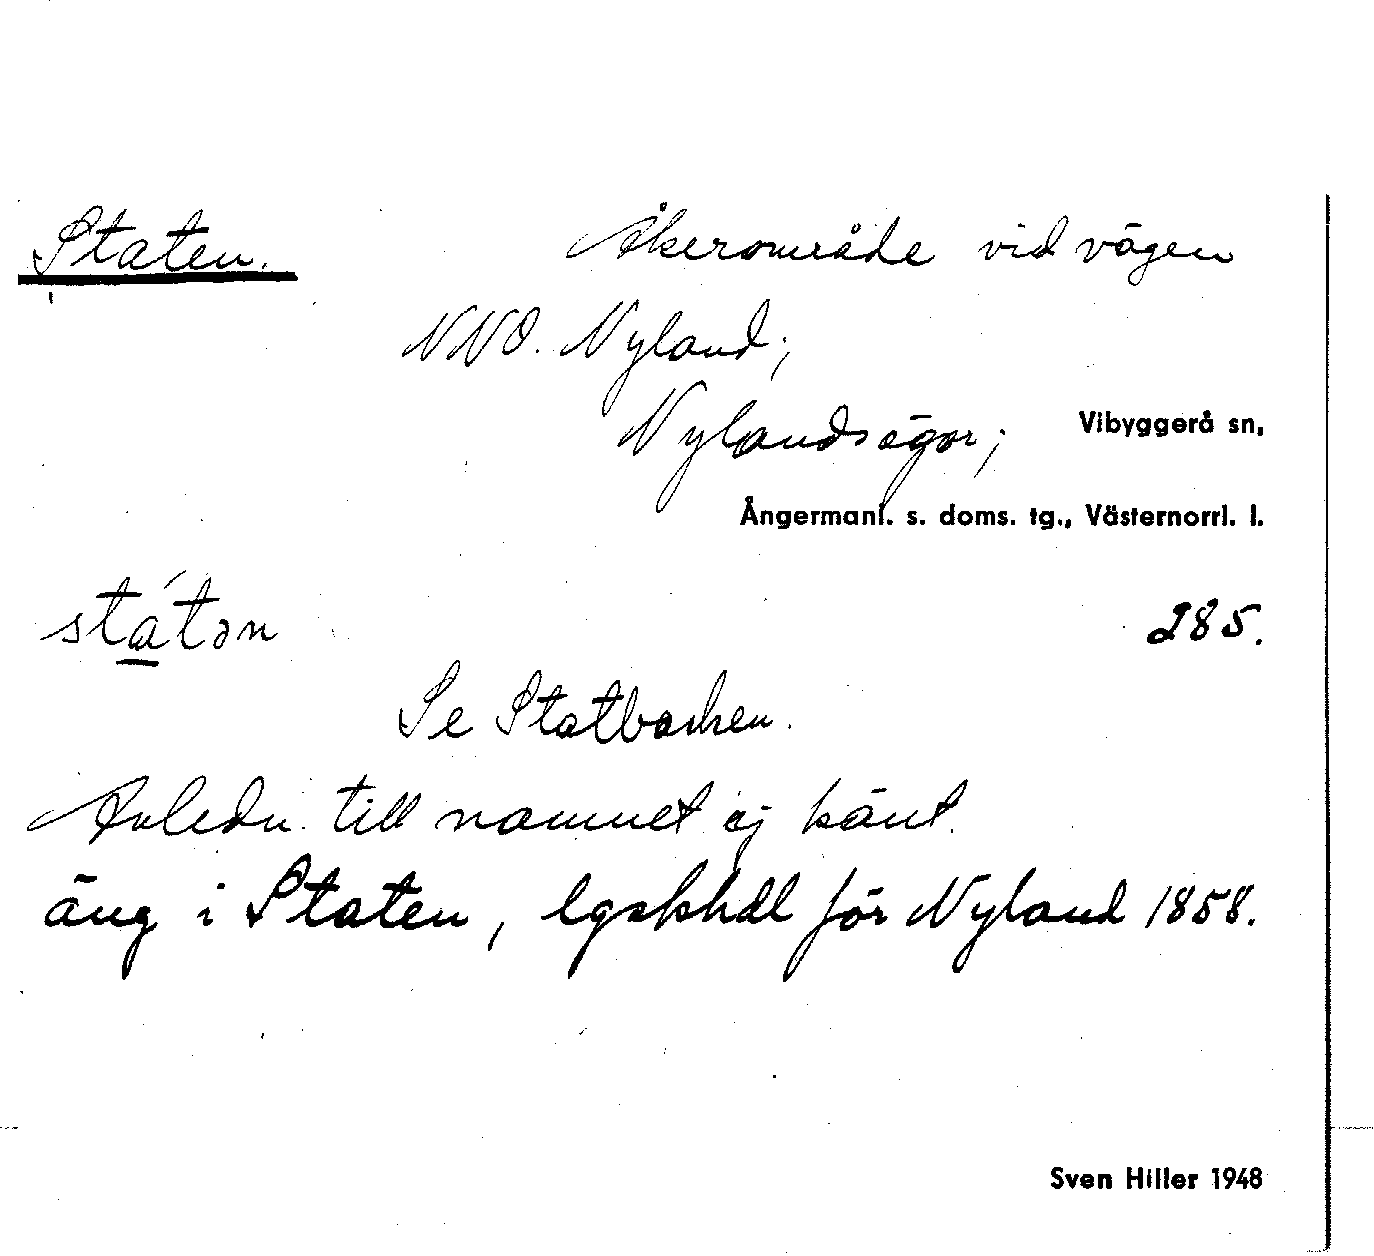 Staten. Åkerområde vid vägen
NNO. Nyland;
Nylandsägor; Vibyggerå sn,
Ångermanl. s. doms. tg., Västernorrl. l.
státən 285.
Se Statbacken.
Avledn. till namnet ej känt.
äng i Staten, lgskhdl för Nyland 1858.
Sven Hiller 1948